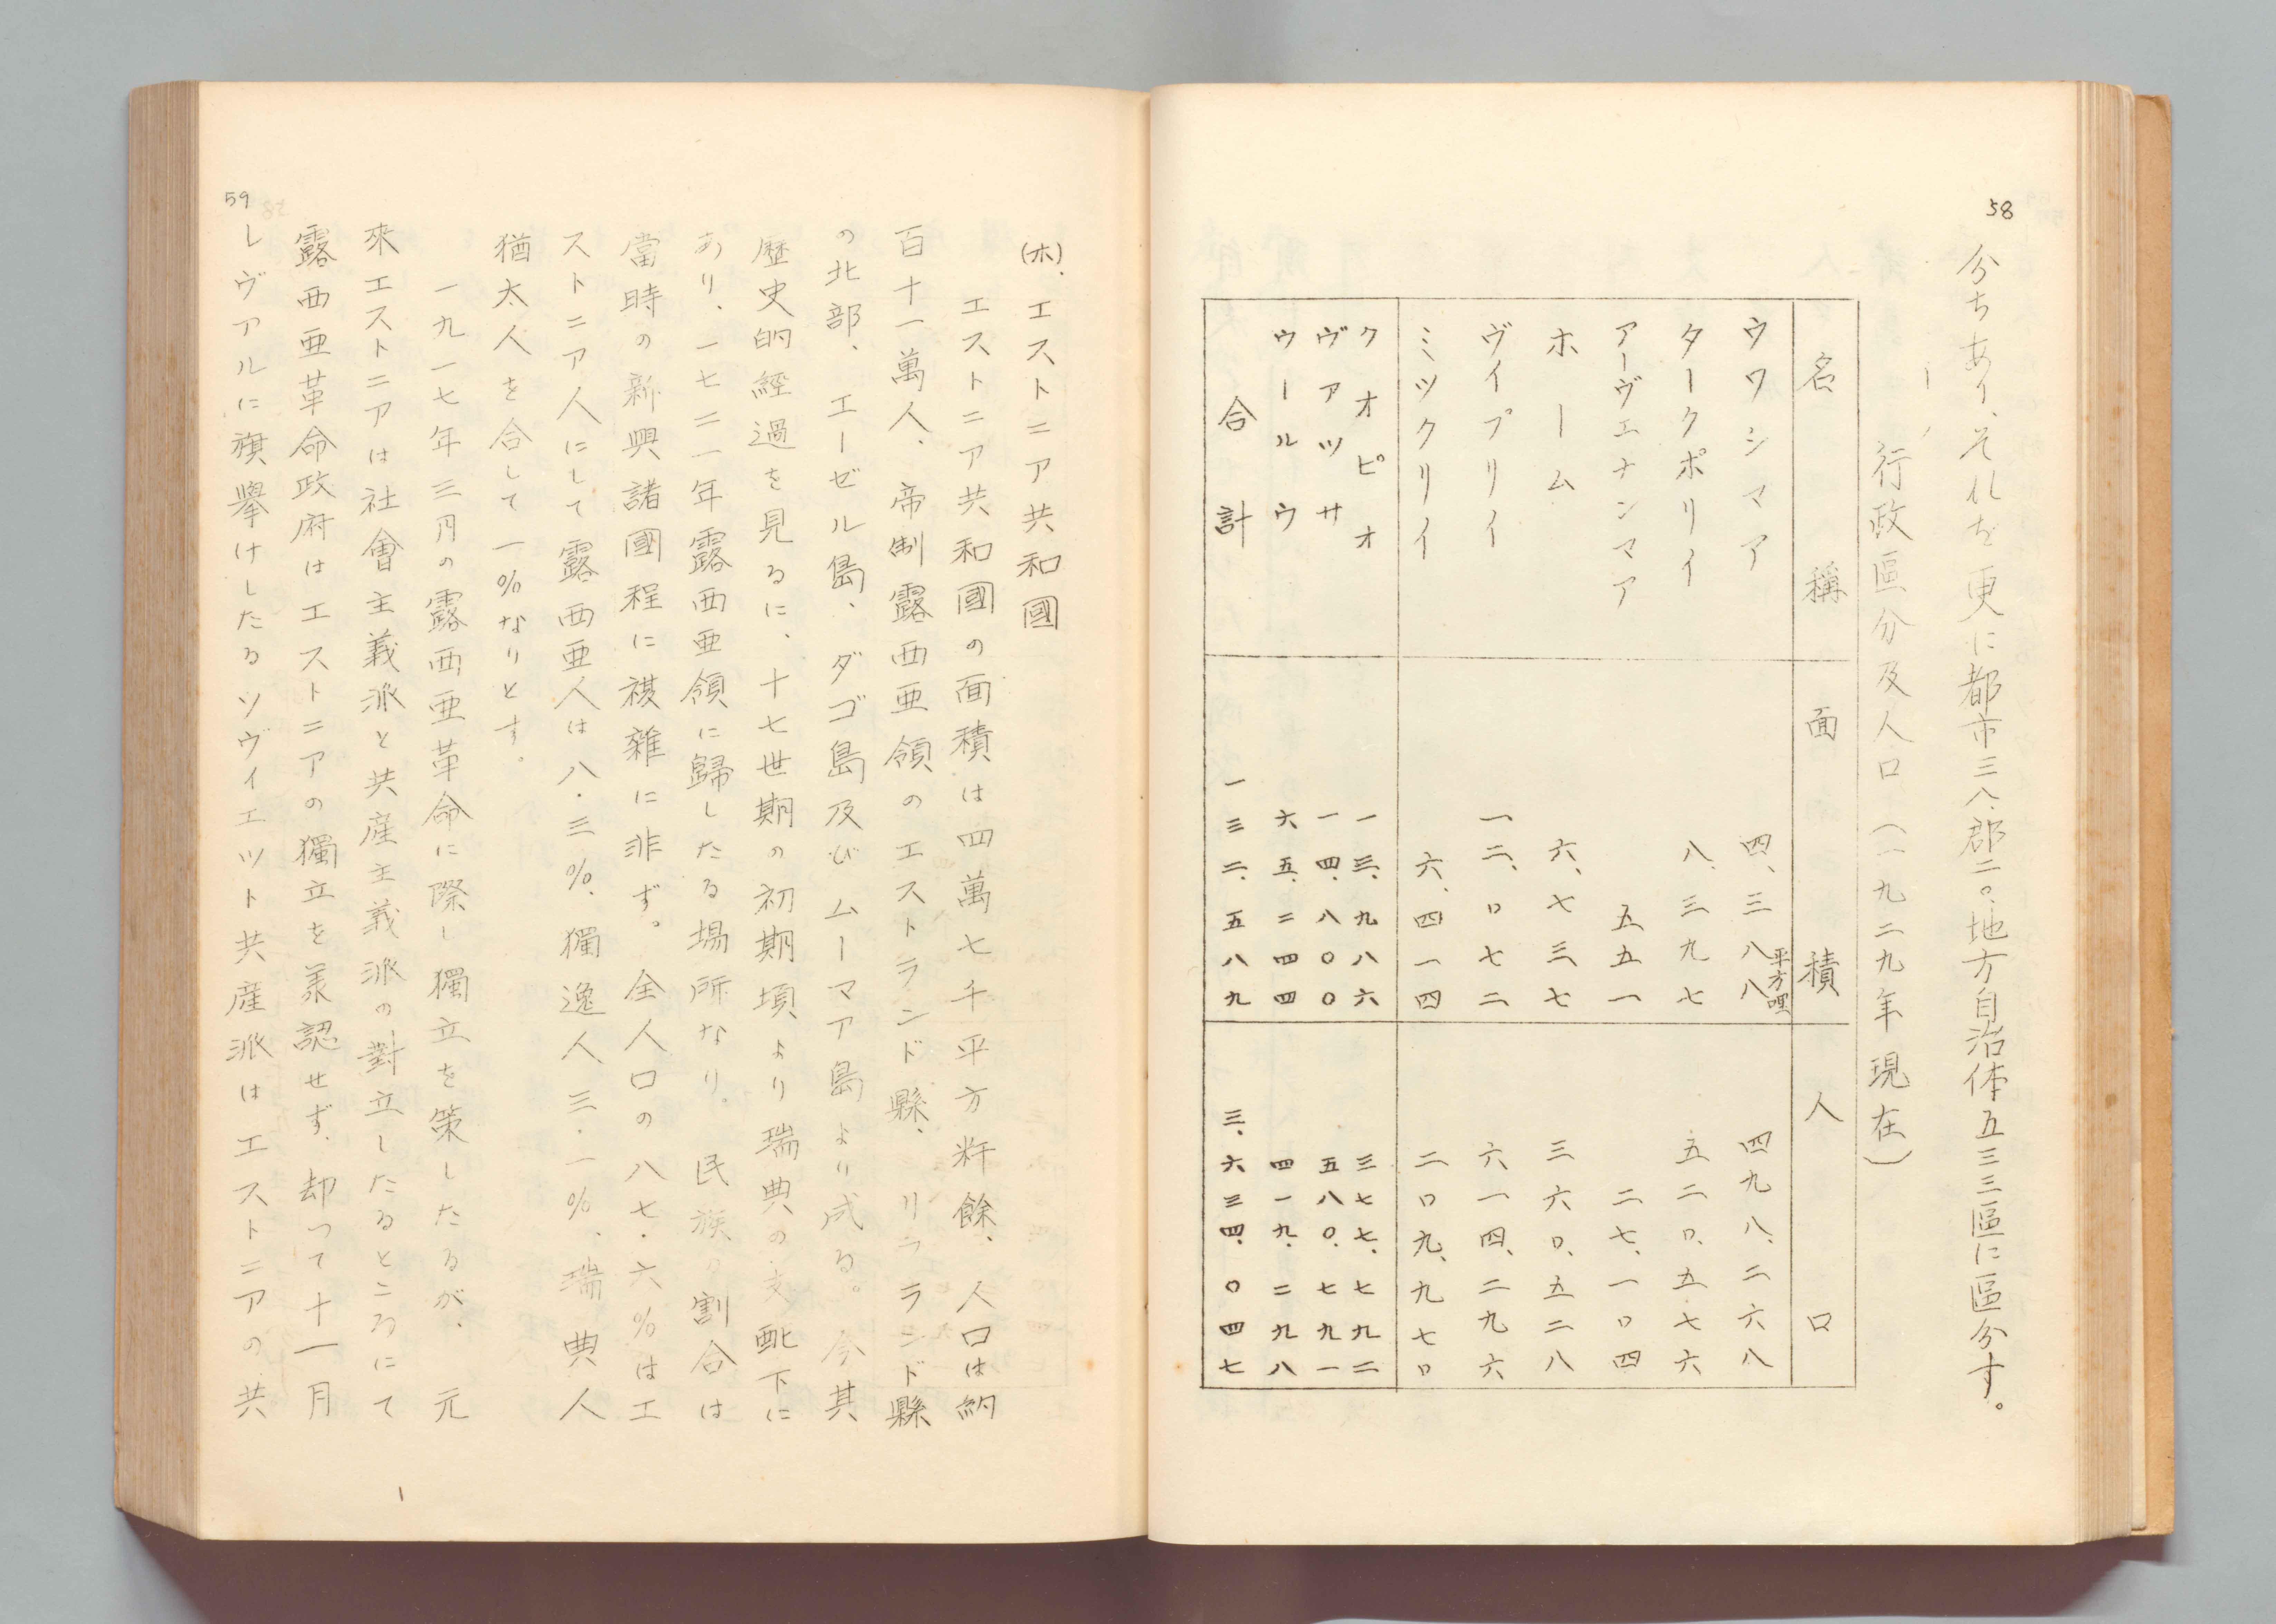 58
分ちあり、それを更に都市三八、郡二〇、地方自治体五三三區に區分す。
行政區分及人口（一九二九年現在）
名稱 面積 人口
ウワシマア 四、三八八平方哩 四九八、二六八
タークポリイ 八、三九七 五二〇、五七六
アーヴエナンマア 五五一 二七、一〇四
ホーム 六、七三七 三六〇、五二八
ヴイプリイ 一二、〇七二 六一四、二九六
ミツクリイ 六、四一四 二〇九、九七〇
クオピオ 一三、九八六 三七七、七九二
ヴアツサ 一四、八〇〇 五八〇、七九一
ウールウ 六五、二四四 四一九、二九八
合計 一三二、五八九 三、六三四、〇四七
(ホ)、エストニア共和國
エストニア共和國の面積は四萬七千平方粁餘、人口は約
百十一萬人、帝制露西亜領のエストランド縣、リヴランド縣
の北部、エーゼル島、ダゴ島及びムーマア島より成る。今其
歷史的經過を見るに、十七世期の初期頃より瑞典の支配下に
あり、一七二一年露西亜領に歸したる場所なり。民族の割合は
當時の新興諸國程に複雜に非ず。全人口の八七・六%はエ
ストニア人にして露西亜人は八・三%、獨逸人三・一%、瑞典人
猶太人を合して一%なりとす。
一九一七年三円の露西亜革命に際し獨立を策したるが、元
來エストニアは社會主義派と共産主義派の對立したるところにて
露西亜革命政府はエストニアの獨立を羕認せず、却つて十一月
レヴアルに旗擧けしたるソヴイエツト共産派はエストニアの共
59